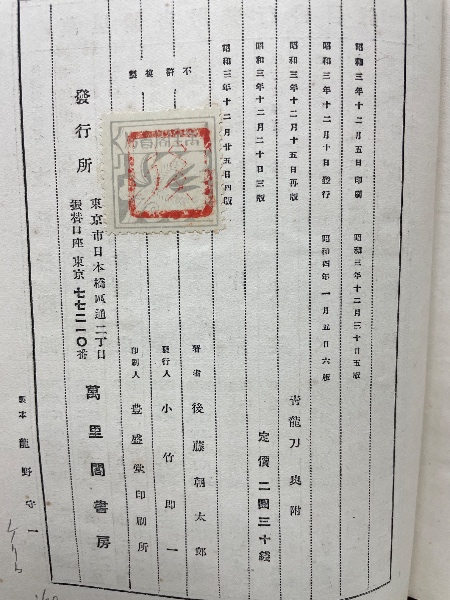 昭和三年十二月五日印刷
昭和三年十二月十日發行
昭和三年十二月十五日再版
昭和三年十二月二十日三版
昭和三年十二月廿五日四版
昭和三年十二月三十日五版
昭和四年一月五日六版
青龍刀奥附
定價二圓三十錢
不許複製
著者 後藤朝太郎
發行人 小竹即一
印刷人 豊盛堂印刷所
發行所
東京市日本橋區通二丁目
振替口座東京七七二一〇番
萬里閣書房
製本 龍野